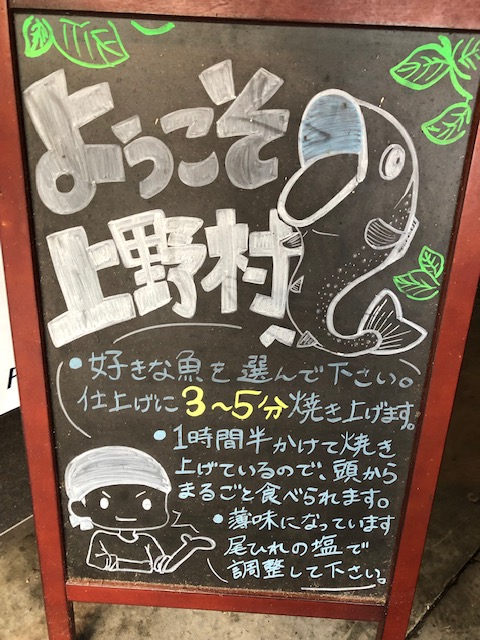 ようこそ
上野村へ
・好きな魚を選んで下さい。
仕上げに3〜5分焼き上げます。
・1時間半かけて焼き
上げているので、頭から
まるごと食べられます。
・薄味になっています
尾ひれの塩で
調整して下さい。